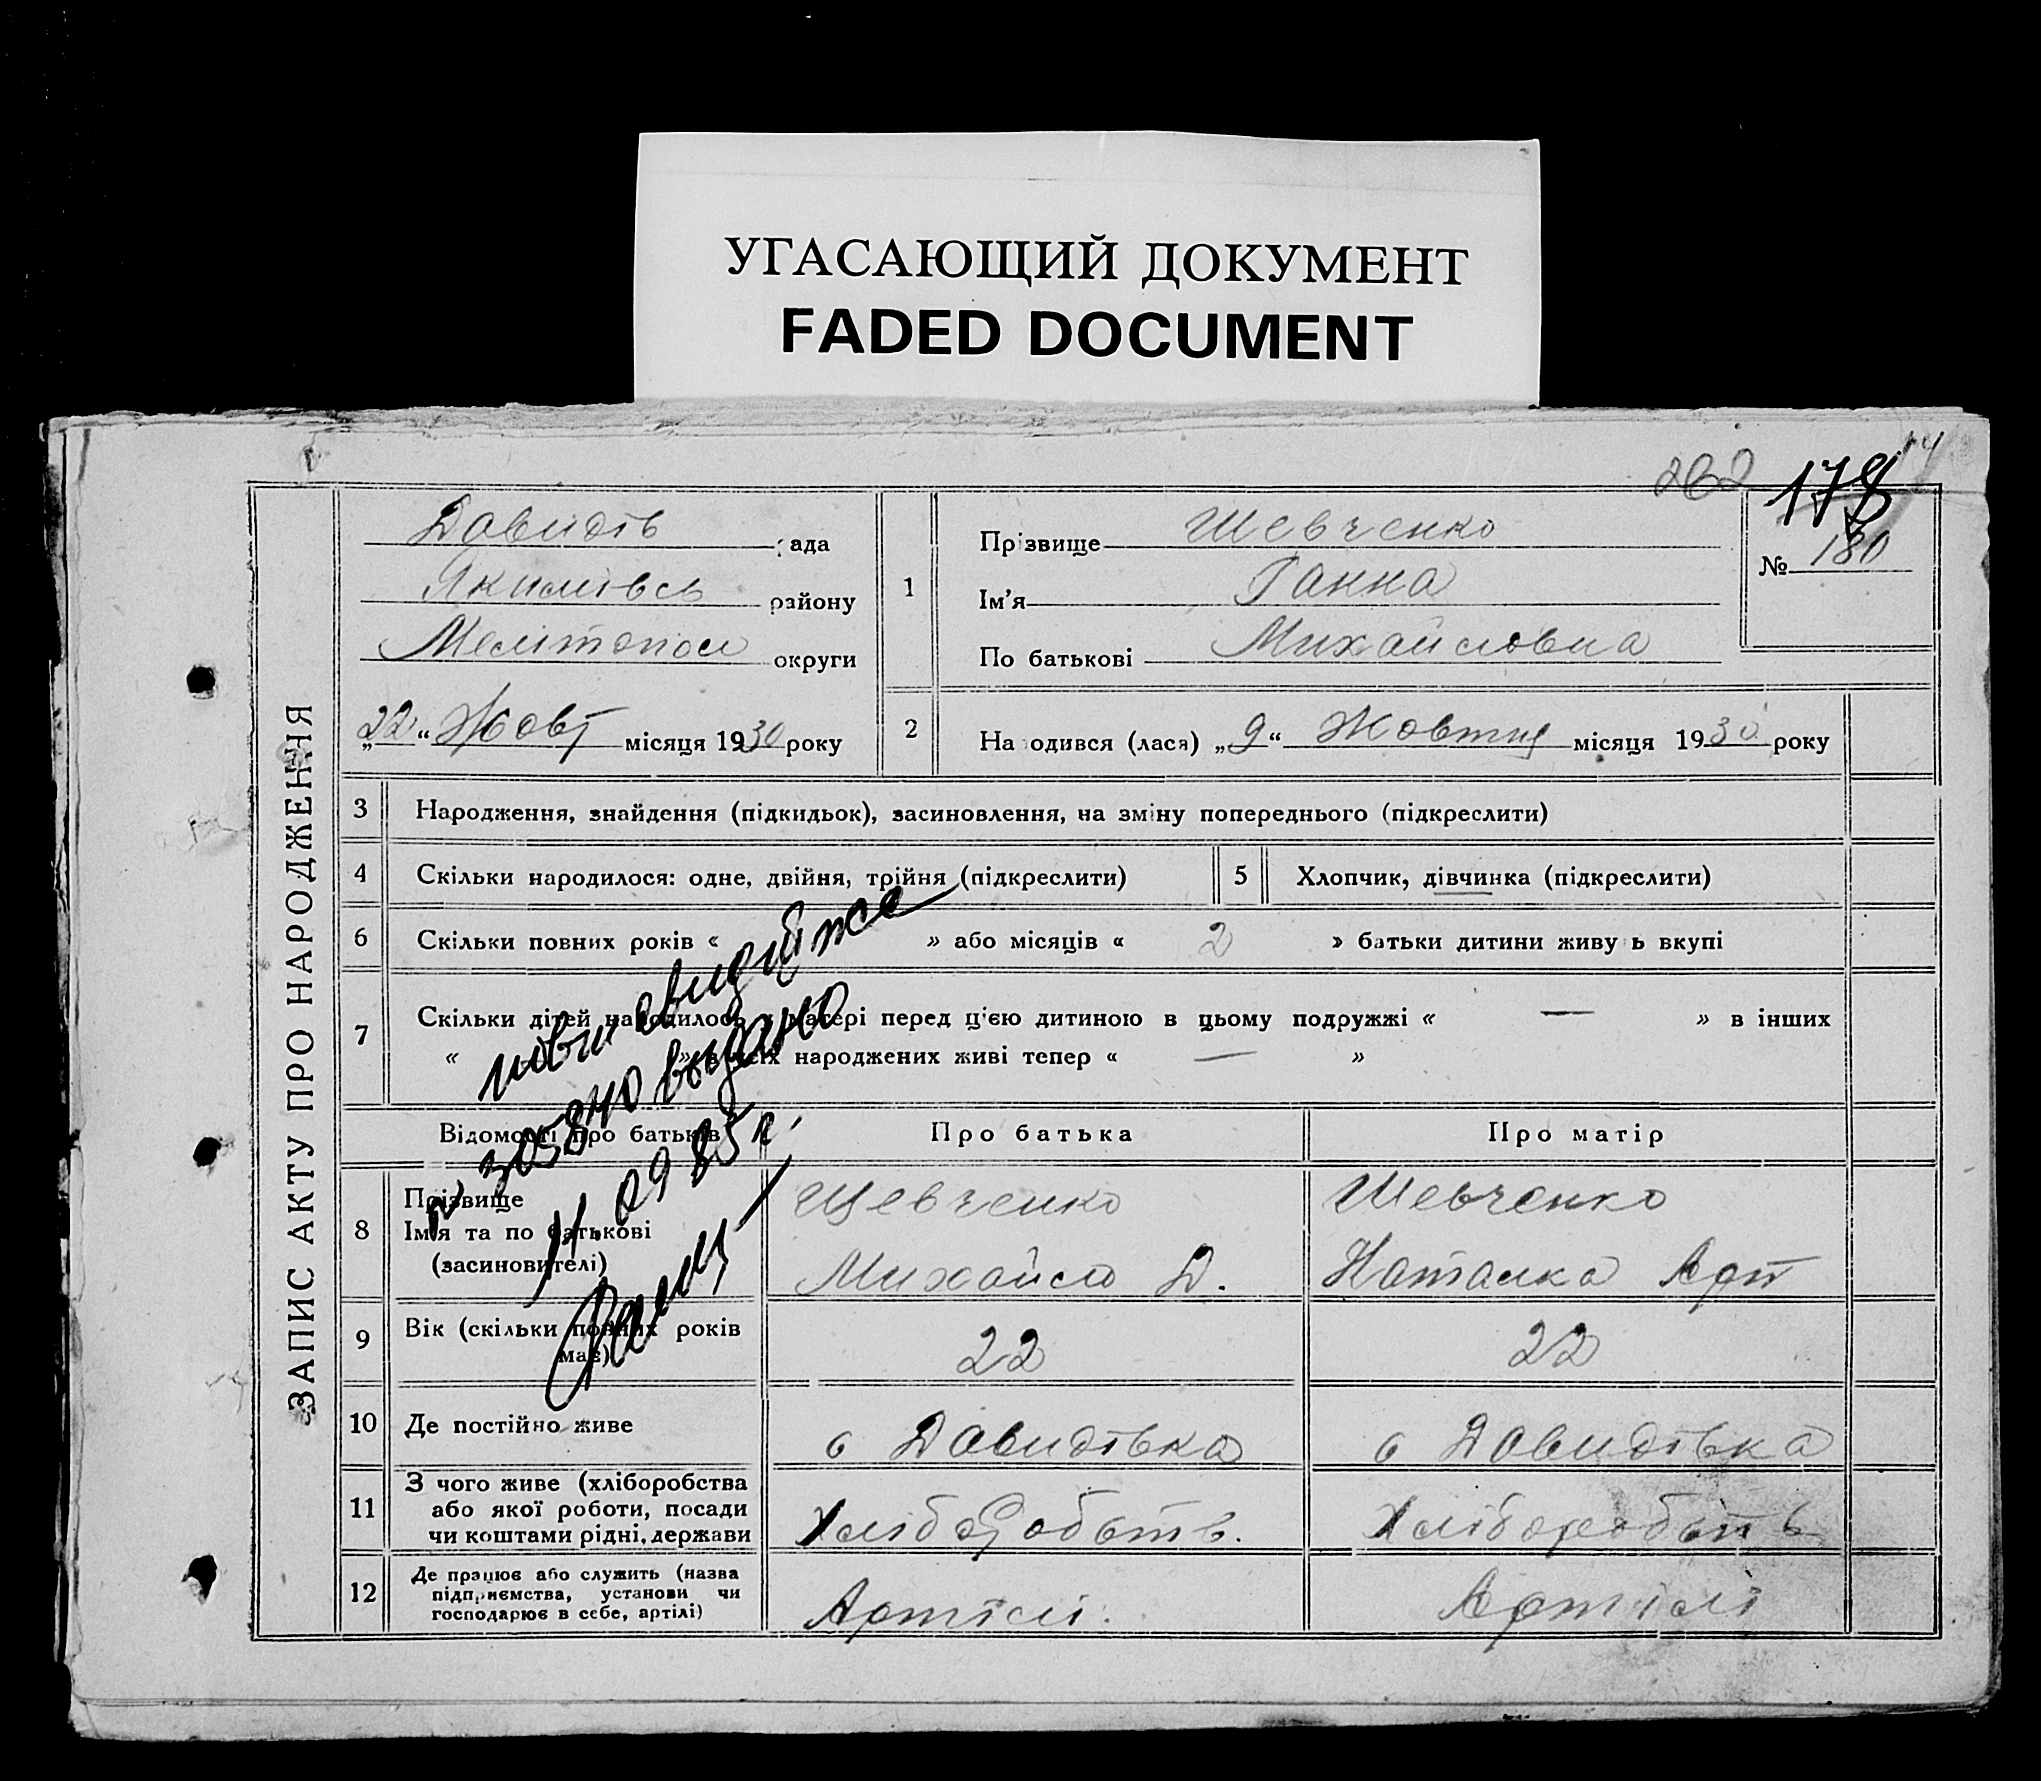 УГАСАЮЩИЙ ДОКУМЕНТ
FADED DOCUMENT
262 178
ЗАПИС АКТУ ПРО НАРОДЖЕННЯ
Давидів рада
Якимівсь району
Мелітопол округи
„22“ Жовт місяця 1930 року
1
Прізвище Шевченко
Ім’я Ганна
По батькові Михайловна
№ 180
2 Народився (лася) „9“ Жовтня місяця 1930 року
3 Народження, знайдення (підкидьок), засиновлення, на зміну попереднього (підкреслити)
4 Скільки народилося: одне, двійня, трійня (підкреслити)
5 Хлопчик, дівчинка (підкреслити)
6 Скільки повних років « » або місяців « 2 » батьки дитини живуть вкупі
7 Скільки дітей народилось у матері перед цією дитиною в цьому подружжі « — » в інших
« » в всіх народжених живі тепер « — »
выдано
11.09.85 г.
Відомості про батьків
Про батька
Про матір
8 Прізвище
Ім’я та по батькові
(засиновителі)
Шевченко
Михайло Д.
Шевченко
Наталка Арт
9 Вік (скільки повних років
має)
22
22
10 Де постійно живе
с Давидівка
с Давидівка
11 З чого живе (хліборобства
або якої роботи, посади
чи коштами рідні, держави
Хліборобств.
Хліборобств
12 Де працює або служить (назва
підприємства, установи чи
господарює в себе, артілі)
Артілі.
Артілі